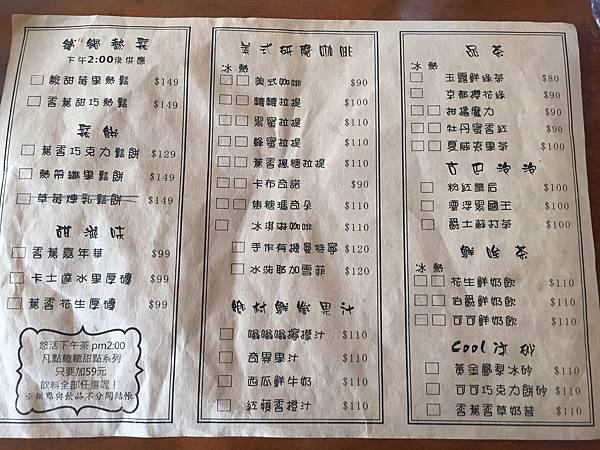 下午2:00後供應
酸甜莓果熱鬆 $149
香蕉甜巧熱鬆 $149
鬆餅
蕉香巧克力鬆餅 $129
熱帶繽果鬆餅 $149
草莓煉乳鬆餅 $149
甜滋味
香蕉嘉年華 $99
卡士達水果厚磚 $99
蕉香花生厚磚 $99
悠活下午茶 pm2:00
凡點轆轆甜點系列
只要加59元
飲料全部任選喔！
※餐點與飲品不分開結帳
美式紙磨咖啡
冰 熱
美式咖啡 $90
轆轆拉提 $100
黑蜜拉提 $110
蜂蜜拉提 $110
蕉香楓糖拉提 $110
卡布奇諾 $90
焦糖瑪奇朵 $110
冰淇淋咖啡 $110
手作有機曼特寧 $120
冰洗耶加雪菲 $120
鄉村鮮榨果汁
嗡嗡嗡檸檬汁 $110
奇異果汁 $110
西瓜鮮牛奶 $110
紅蘋香橙汁 $110
品茶
冰 熱
玉露鮮綠茶 $80
京都櫻花綠 $90
柑橘魔力 $90
牡丹蜜香紅 $90
夏威夷果茶 $100
古巴冷泡
粉紅皇后 $100
漂浮黑國王 $100
爵士蘇打茶 $100
鮮奶茶
冰 熱
花生鮮奶飲 $110
伯爵鮮奶飲 $110
可可鮮奶飲 $110
Cool冰砂
黃金鳳梨冰砂 $110
可可巧克力餅砂 $110
香蕉香草奶昔 $110